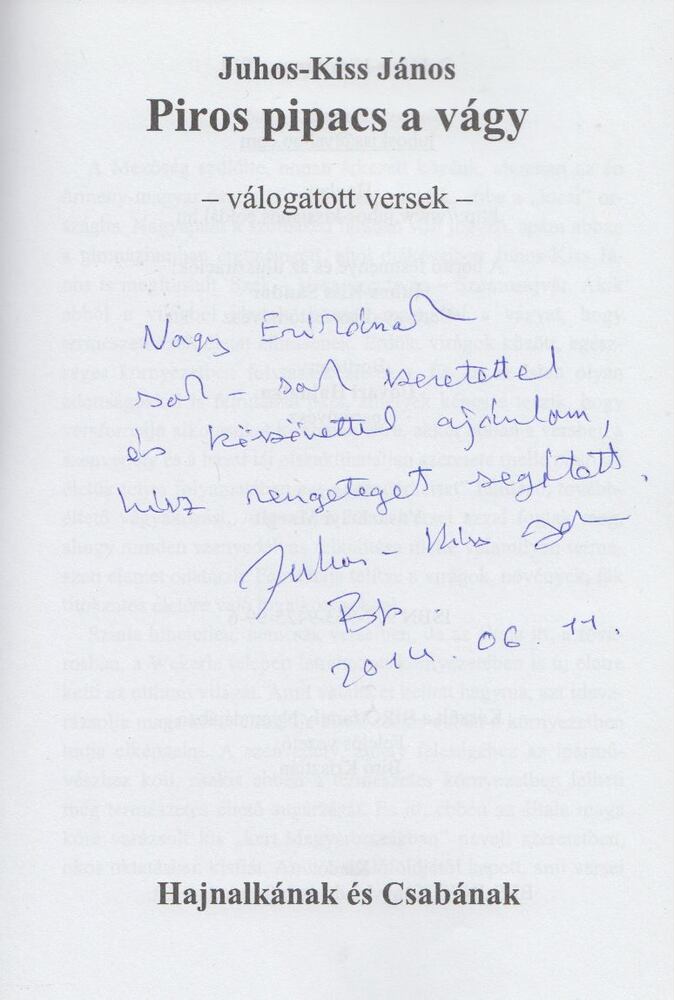 Juhos-Kiss János
Piros pipacs a vágy
– válogatott versek –
Nagy Erikának
sok – sok szeretettel
és köszönettel ajánlom,
hisz rengeteget segített.
Juhos – Kiss János
Bp.
2014. 06. 11.
Hajnalkának és Csabának